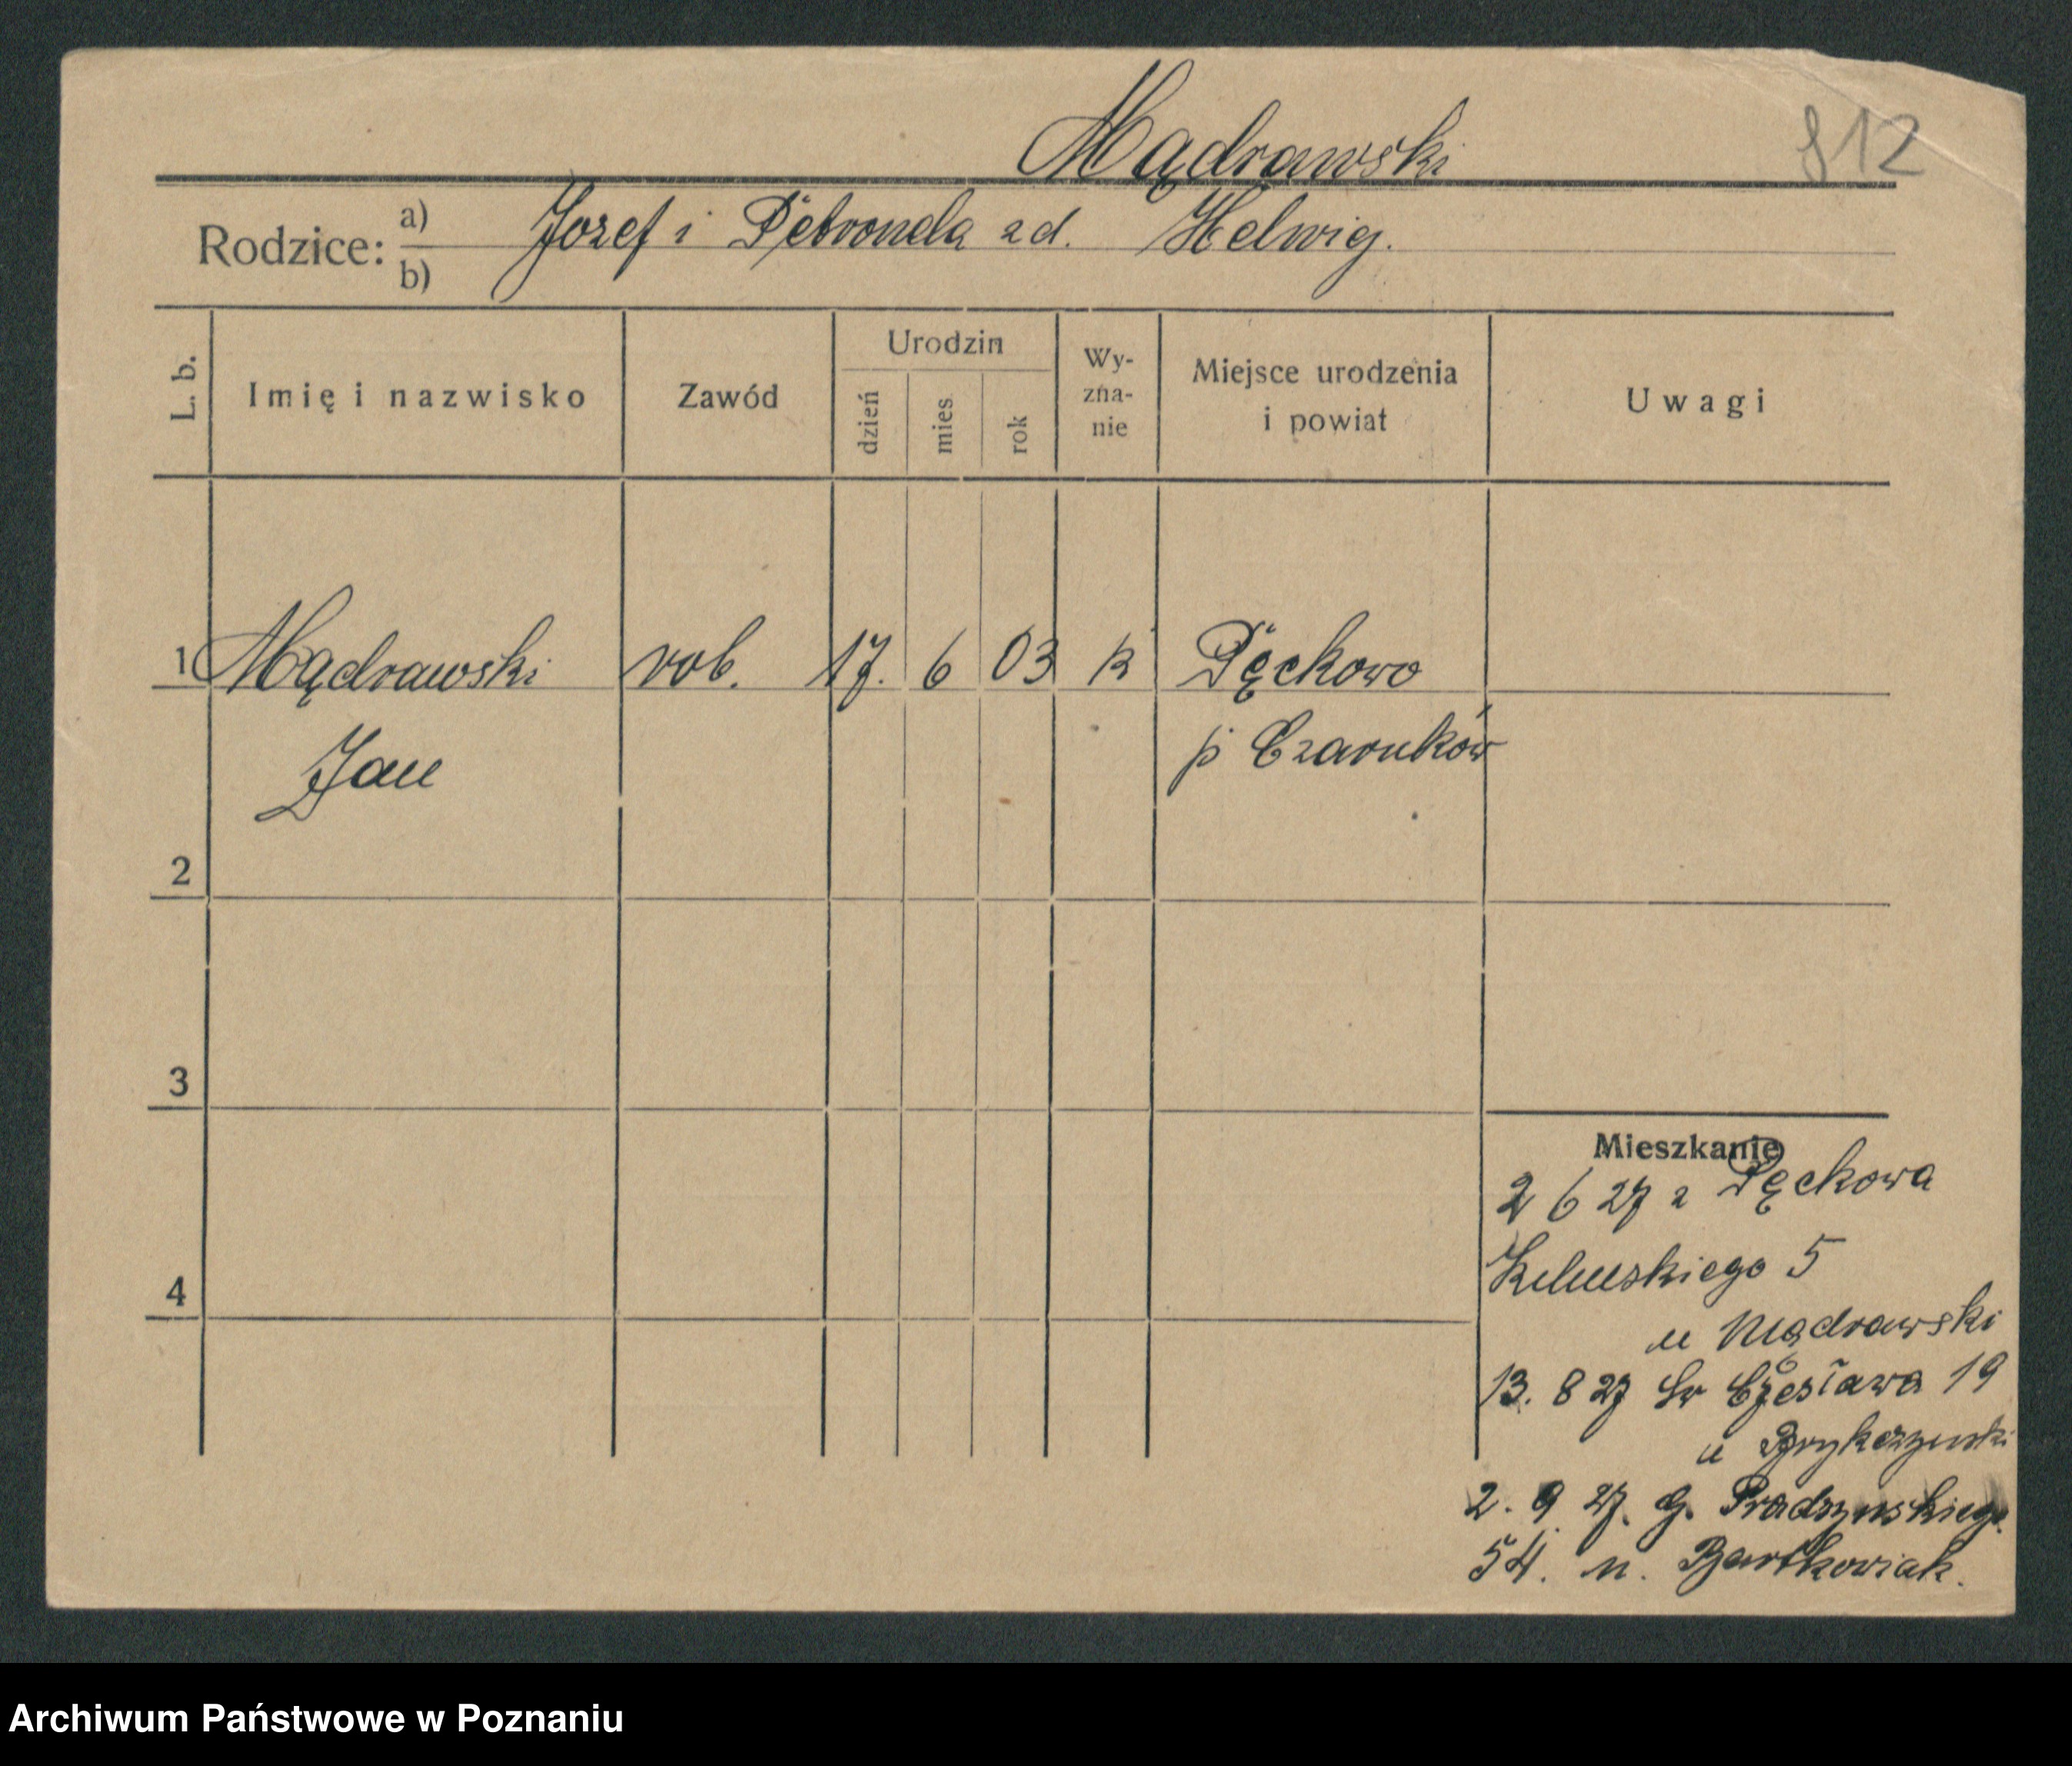 Mądrawski
812
Rodzice: a) Jozef i Petronela zd. Helwig.
b)
L. b. Imię i nazwisko Zawód Urodzin dzień mies rok Wy-zna-nie Miejsce urodzenia i powiat Uwagi
1 Mądrawski rob. 17. 6 03 k Pęckowo
Jan p Czarnków
2
3
4
Mieszkanie
2 6 27 z Pęckowa
5
u Mądrawski
13. 8 27 Św Czesława 19
u
2. 9. 27. G. Prądzynskiego
54. u. Bartkowiak.
Archiwum Państwowe w Poznaniu